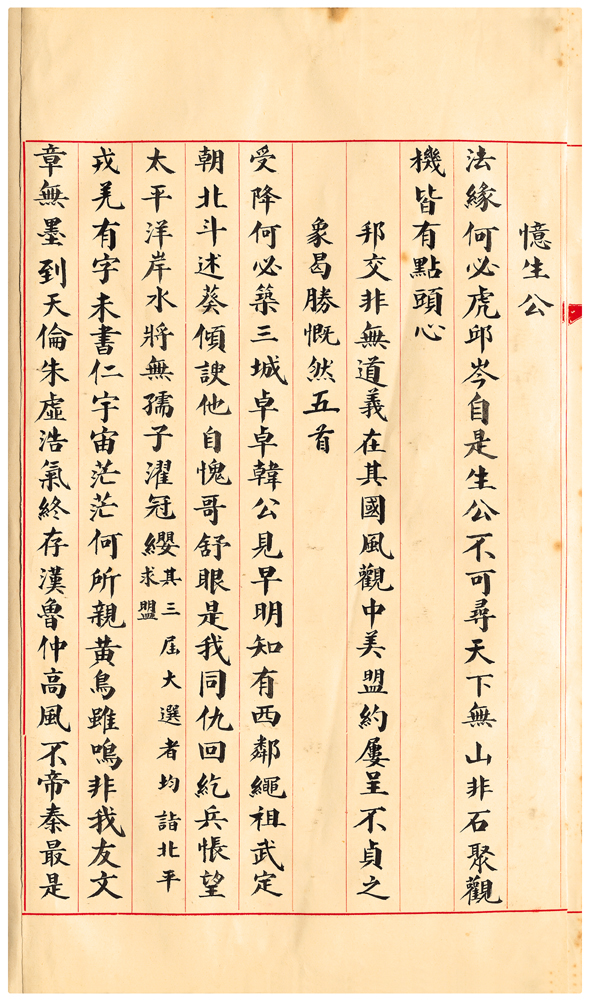 憶生公
法緣何必虎邱岑自是生公不可尋天下無山非石聚觀
機皆有點頭心
邦交非無道義在其國風觀中美盟約屢呈不貞之
象曷勝慨然五首
受降何必築三城卓卓韓公見早明知有西鄰繩祖武定
朝北斗述葵傾諛他自愧哥舒眼是我同仇回紇兵悵望
太平洋岸水將無孺子濯冠纓其三屆大選者均詣北平求盟
戎羌有字未書仁宇宙茫茫何所親黃鳥雖鳴非我友文
章無墨到天倫朱虛浩氣終存漢魯仲高風不帝秦最是